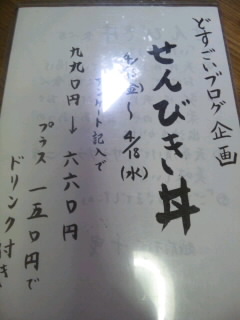 どすごいブログ企画
せんびきぃ丼
4/13(金)〜4/18(水)
アンケート記入で
九九〇円→六六〇円
プラス一五〇円で
ドリンク付き